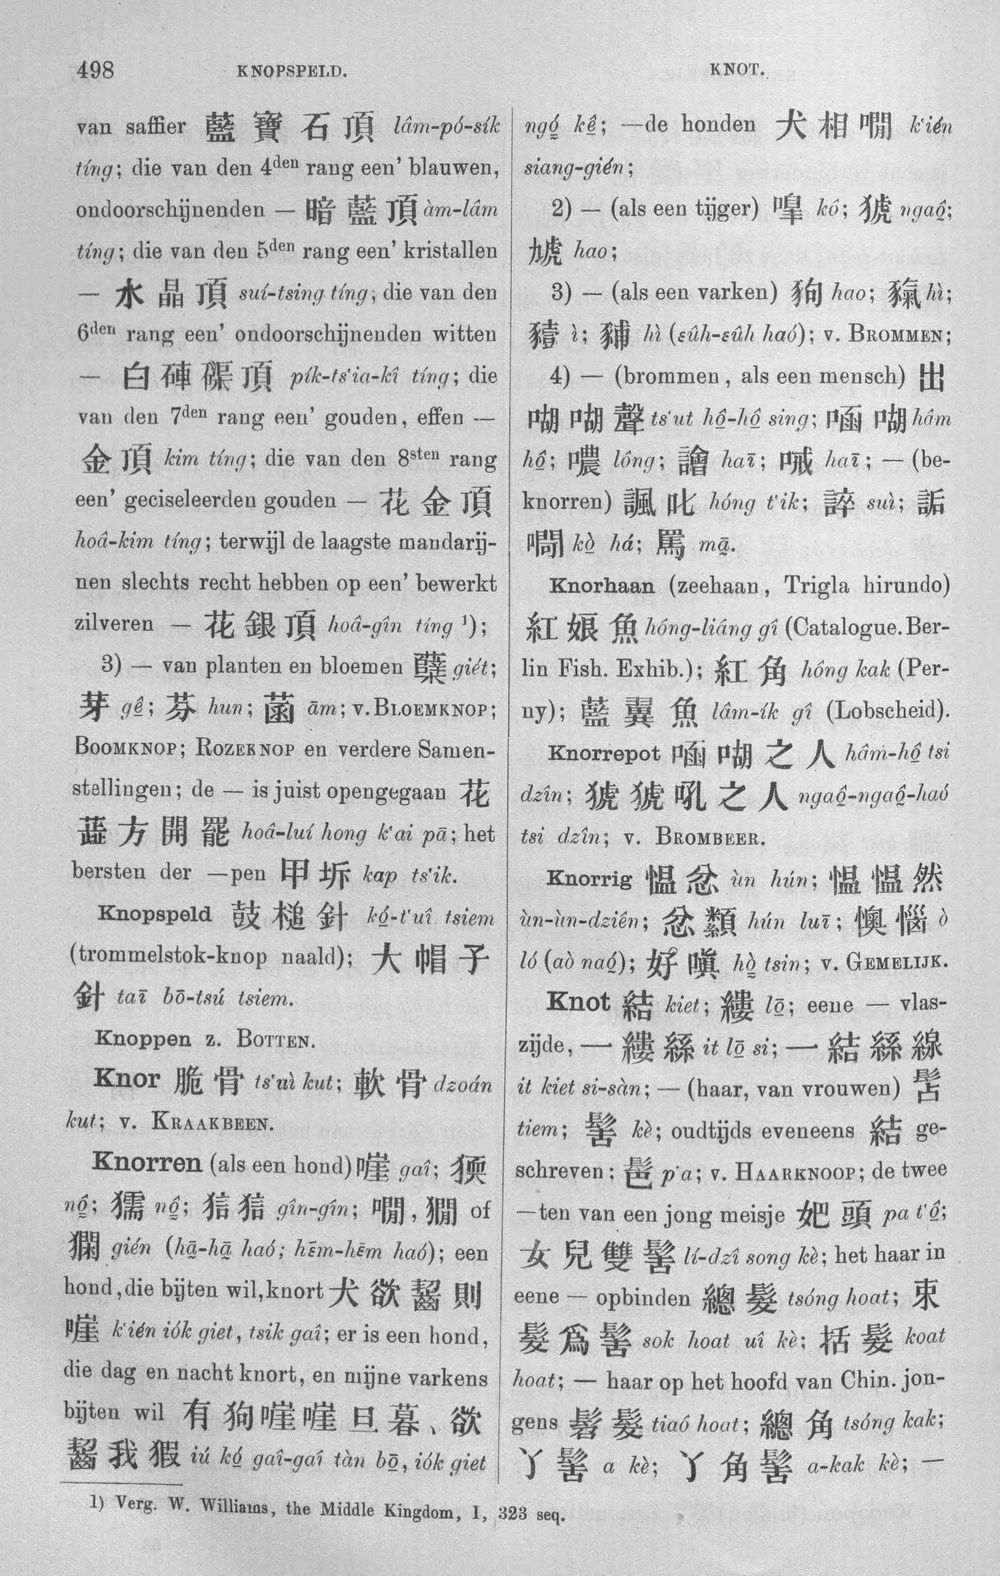 498 KNOPSPELD. KNOT.
van saffier 藍寶石頂 lâm-pó-sík
tíng; die van den 4den rang een’ blauwen,
ondoorschijnenden — 暗藍頂 àm-lâm
tíng; die van den 5den rang een’ kristallen
— 水晶頂 suí-tsing tíng; die van den
6den rang een’ ondoorschijnenden witten
— 白硨磲頂 pík-ts‘ia-kî tíng; die
van den 7den rang een’ gouden, effen —
金頂 kim tíng; die van den 8sten rang
een’ geciseleerden gouden — 花金頂
hoâ-kim tíng; terwijl de laagste mandarij-
nen slechts recht hebben op een’ bewerkt
zilveren — 花銀頂 hoâ-gîn tíng ¹);
3) — van planten en bloemen 蘖 giét;
芽 gê; 芬 hun; 菡 ām; v. BLOEMKNOP;
BOOMKNOP; ROZEKNOP en verdere Samen-
stellingen; de — is juist opengegaan 花
蕋方開罷 hoâ-luí hong k‘ai pā; het
bersten der —pen 甲坼 kap ts‘ik.
Knopspeld 鼓槌針 kó-t‘uî tsiem
(trommelstok-knop naald); 大帽子
針 taī bō-tsú tsiem.
Knoppen z. BOTTEN.
Knor 脆骨 ts‘uì kut; 軟骨 dzoán
kut; v. KRAAKBEEN.
Knorren (als een hond) 啀 gaî;
nô; 獳 nô; 狺狺 gîn-gîn; 嘺 of
gién (hā-hā haó; hēm-hēm haó); een
hond, die bijten wil, knort 犬欲齧則
啀 k‘ién iók giet, tsik gaî; er is een hond,
die dag en nacht knort, en mijne varkens
bijten wil 有狗啀啀旦暮、欲
齧我猳 iú kó gaî-gaî tàn bō, iók giet
1) Verg. W. Williams, the Middle Kingdom, I, 323 seq.
ngó kê; —de honden 犬相 k‘ién
siang-gién;
2) — (als een tijger) 嘷 kô; 猇 ngaô;
虓 hao;
3) — (als een varken) 豞 hao; hì;
豷 ì; hì (sûh-sûh haó); v. BROMMEN;
4) — (brommen, als een mensch) 出
㗅㗅聲 ts‘ut hô-hô sing; 㗅 hâm
hô; 噥 lông; 譮 haī; 㖑 haī; — (be-
knorren) 諷叱 hóng t‘ik; 誶 suì; 詬
kò há; 罵 mā.
Knorhaan (zeehaan, Trigla hirundo)
紅娘魚 hóng-liáng gî (Catalogue. Ber-
lin Fish. Exhib.); 紅角 hông kak (Per-
ny); 藍翼魚 lâm-ík gî (Lobscheid).
Knorrepot 㗅之人 hâm-hô tsi
dzîn; 猇猇吼之人 ngaô-ngaô-haó
tsi dzîn; v. BROMBEER.
Knorrig 慍忿 ùn hún; 慍慍然
ùn-ùn-dziên; 忿纇 hún luī; 懊惱 ò
ló (aò naó); 好嗔 hò tsin; v. GEMELIJK.
Knot 結 kiet; 縷 lō; eene — vlas-
zijde, 一縷絲 it lō si; 一結絲線
it kiet si-sàn; — (haar, van vrouwen) 髻
tiem; 髻 kè; oudtijds eveneens 結 ge-
schreven; 髱 p‘a; v. HAARKNOOP; de twee
—ten van een jong meisje 妑頭 pa t‘ô;
女兒雙髻 lí-dzî song kè; het haar in
eene — opbinden 總髮 tsóng hoat; 束
髮爲髻 sok hoat uî kè; 括髮 koat
hoat; — haar op het hoofd van Chin. jon-
gens 髫髮 tiaô hoat; 總角 tsóng kak;
丫髻 a kè; 丫角髻 a-kak kè; —